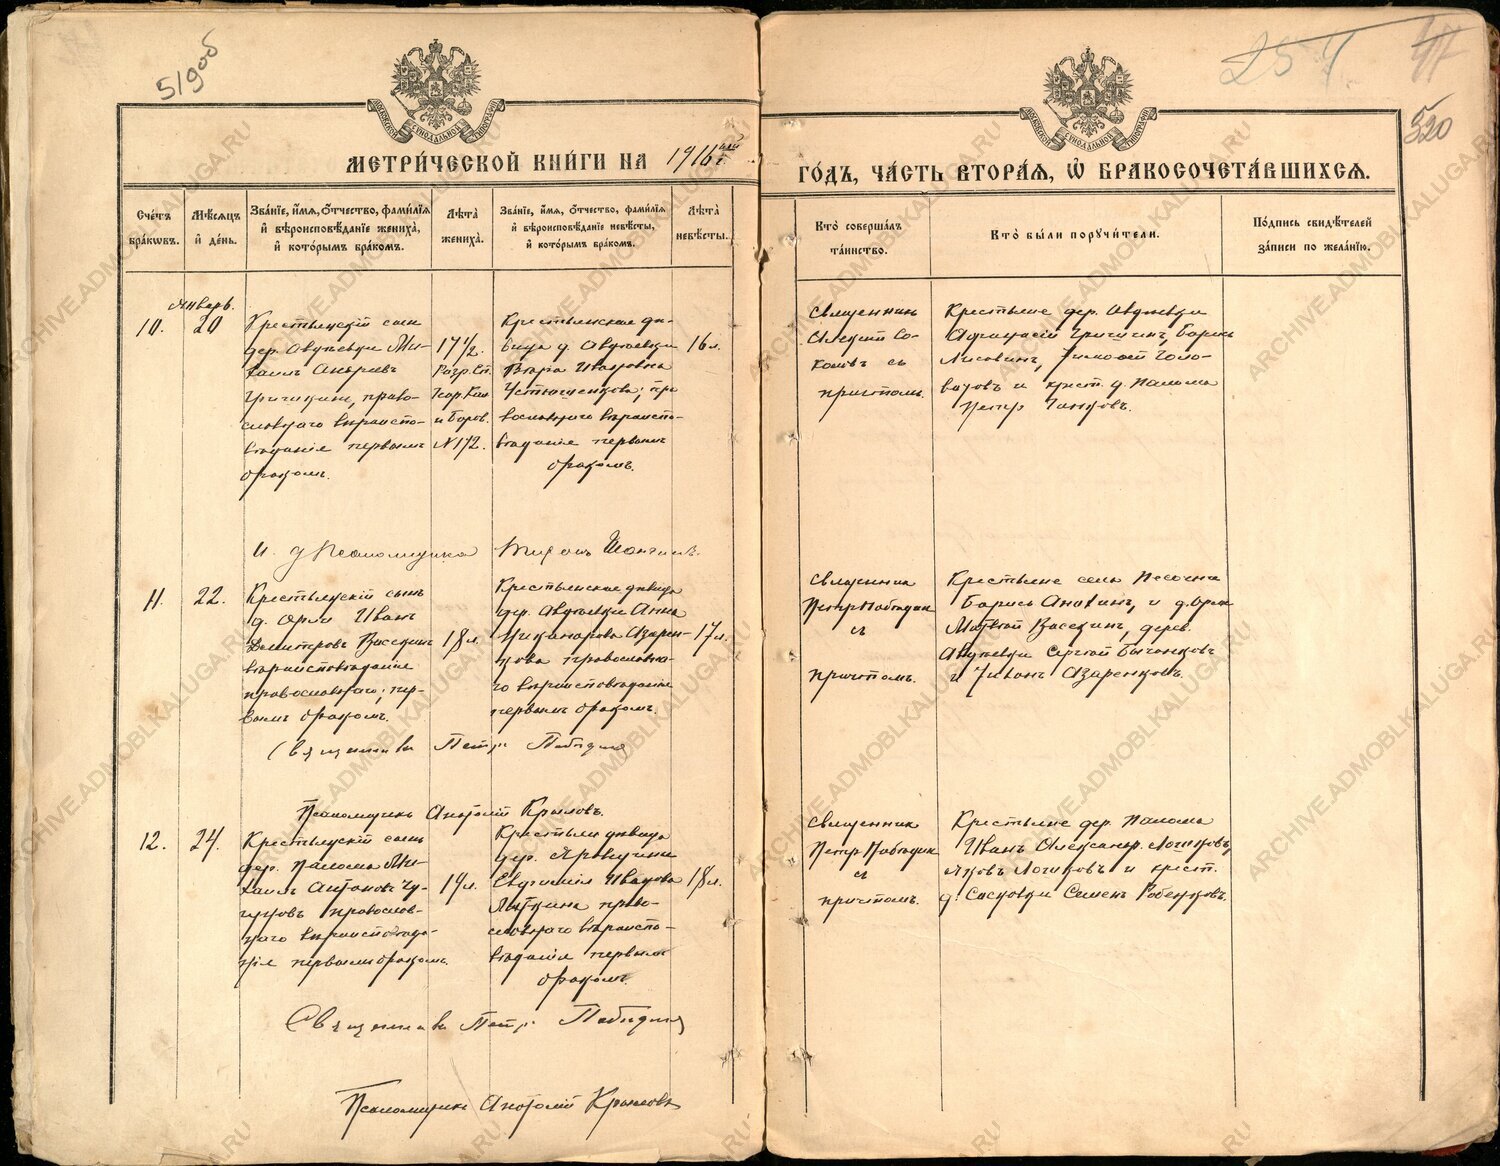 519 об
257
47
520
МЕТРИ́ЧЕСКОЙ КНИ́ГИ НА 1916 г.
ГО́ДЪ, ЧА́СТЬ ВТОРА́Я, Ѡ БРАКОСОЧЕТА́ВШИХСЯ.
Сче́тъ бра́кѡвъ.
Мѣ́сяцъ и́ де́нь.
Зва́нїе, и́мя, ѻ́тчество, фами́лїя и́ вѣроисповѣ́данїе жениха̀, и́ кото́рымъ бра́комъ.
Лѣ́та жениха̀.
Зва́нїе, и́мя, ѻ́тчество, фами́лїя и́ вѣроисповѣ́данїе невѣ́сты, и́ кото́рымъ бра́комъ.
Лѣ́та невѣ́сты.
Кто̀ соверша́лъ та́инство.
Кто̀ бы́ли пору́чители.
По́дпись свидѣ́телей за́писи по жела́нїю.
Январь.
10.
20
Крестьянскій сын
дер. Авдѣевки Ми-
хаилъ Андреевъ
Гришкинъ, право-
славнаго вѣроиспо-
вѣданія первымъ
бракомъ.
17 1/2.
№ 172.
Крестьянская дѣ-
вица д. Авдѣевки
Вѣра Ивановна
Устюшенкова; пра
вославнаго вѣроиспо-
вѣданія первымъ
бракомъ.
16 л.
Священникъ
Алексій Со-
коловъ съ
причтомъ.
Крестьяне дер. Авдѣевки
Афанасій Гришкинъ, Борисъ
Петръ
И. д. Псаломщика
11.
22.
Крестьянскій сынъ
д. Орли Иванъ
Димитровъ Васекинъ
вѣроисповѣданія
православнаго; пер-
вымъ бракомъ.
18 л.
Крестьянская дѣвица
дер. Авдѣевки Анна
Никанорова Азарен-
кова православна-
го вѣроисповѣданія
первымъ бракомъ.
17 л.
Священникъ
Петръ Побѣдин
съ
причтомъ.
Крестьяне села Песочна
Борисъ Анохинъ, и д. Орли
Матвѣй Васекинъ, дерев.
Авдѣевки Сергѣй Бычонковъ
и Иванъ Азаренковъ.
Священникъ Петръ Побѣдин
Псаломщикъ Анатолій Крыловъ.
12.
24.
Крестьянскій сынъ
дер. Палома Ми-
хаилъ Антоновъ Чу-
гуновъ православ-
наго вѣроисповѣда-
нія первымъ бракомъ.
19 л.
Крестьян дѣвица
дер.
Евгенія Иванова
Миткина право-
славнаго вѣроиспо-
вѣданія первымъ
бракомъ.
18 л.
Священникъ
Петръ Побѣдин
съ
причтомъ.
Крестьяне дер. Палома
Иванъ Александр. Логиновъ,
Яковъ Логиновъ и крест.
д. Сосновки Семенъ Рябенковъ.
Священникъ Петръ Побѣдин
Псаломщикъ Анатолій Крыловъ
ARCHIVE.ADMOBLKALUGA.RU